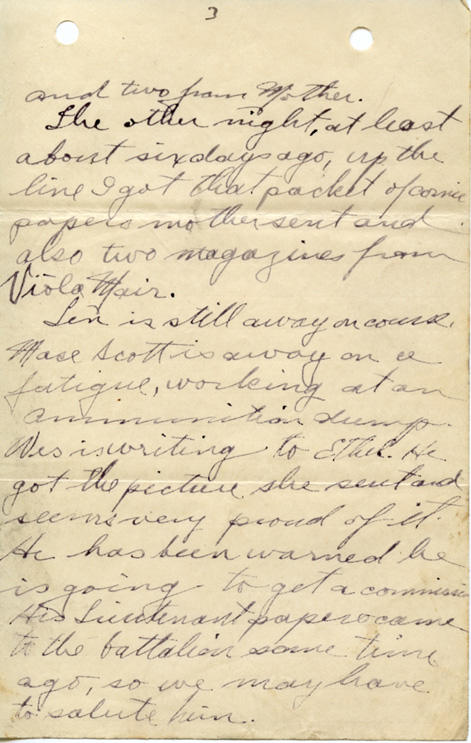 3
and two from Mother.
The other night, at least
about six days ago, up the
line I got that packet of comic
papers mother sent and
also two magazines from
Viola Mair.
Len is still away on course.
Mase Scott is away on a
fatigue, working at an
ammunition dump.
Wes is writing to Ethel. He
got the picture she sent and
seems very proud of it.
He has been warned he
is going to get a commission
His Lieutenant papers came
to the battalion some time
ago, so we may have
to salute him.